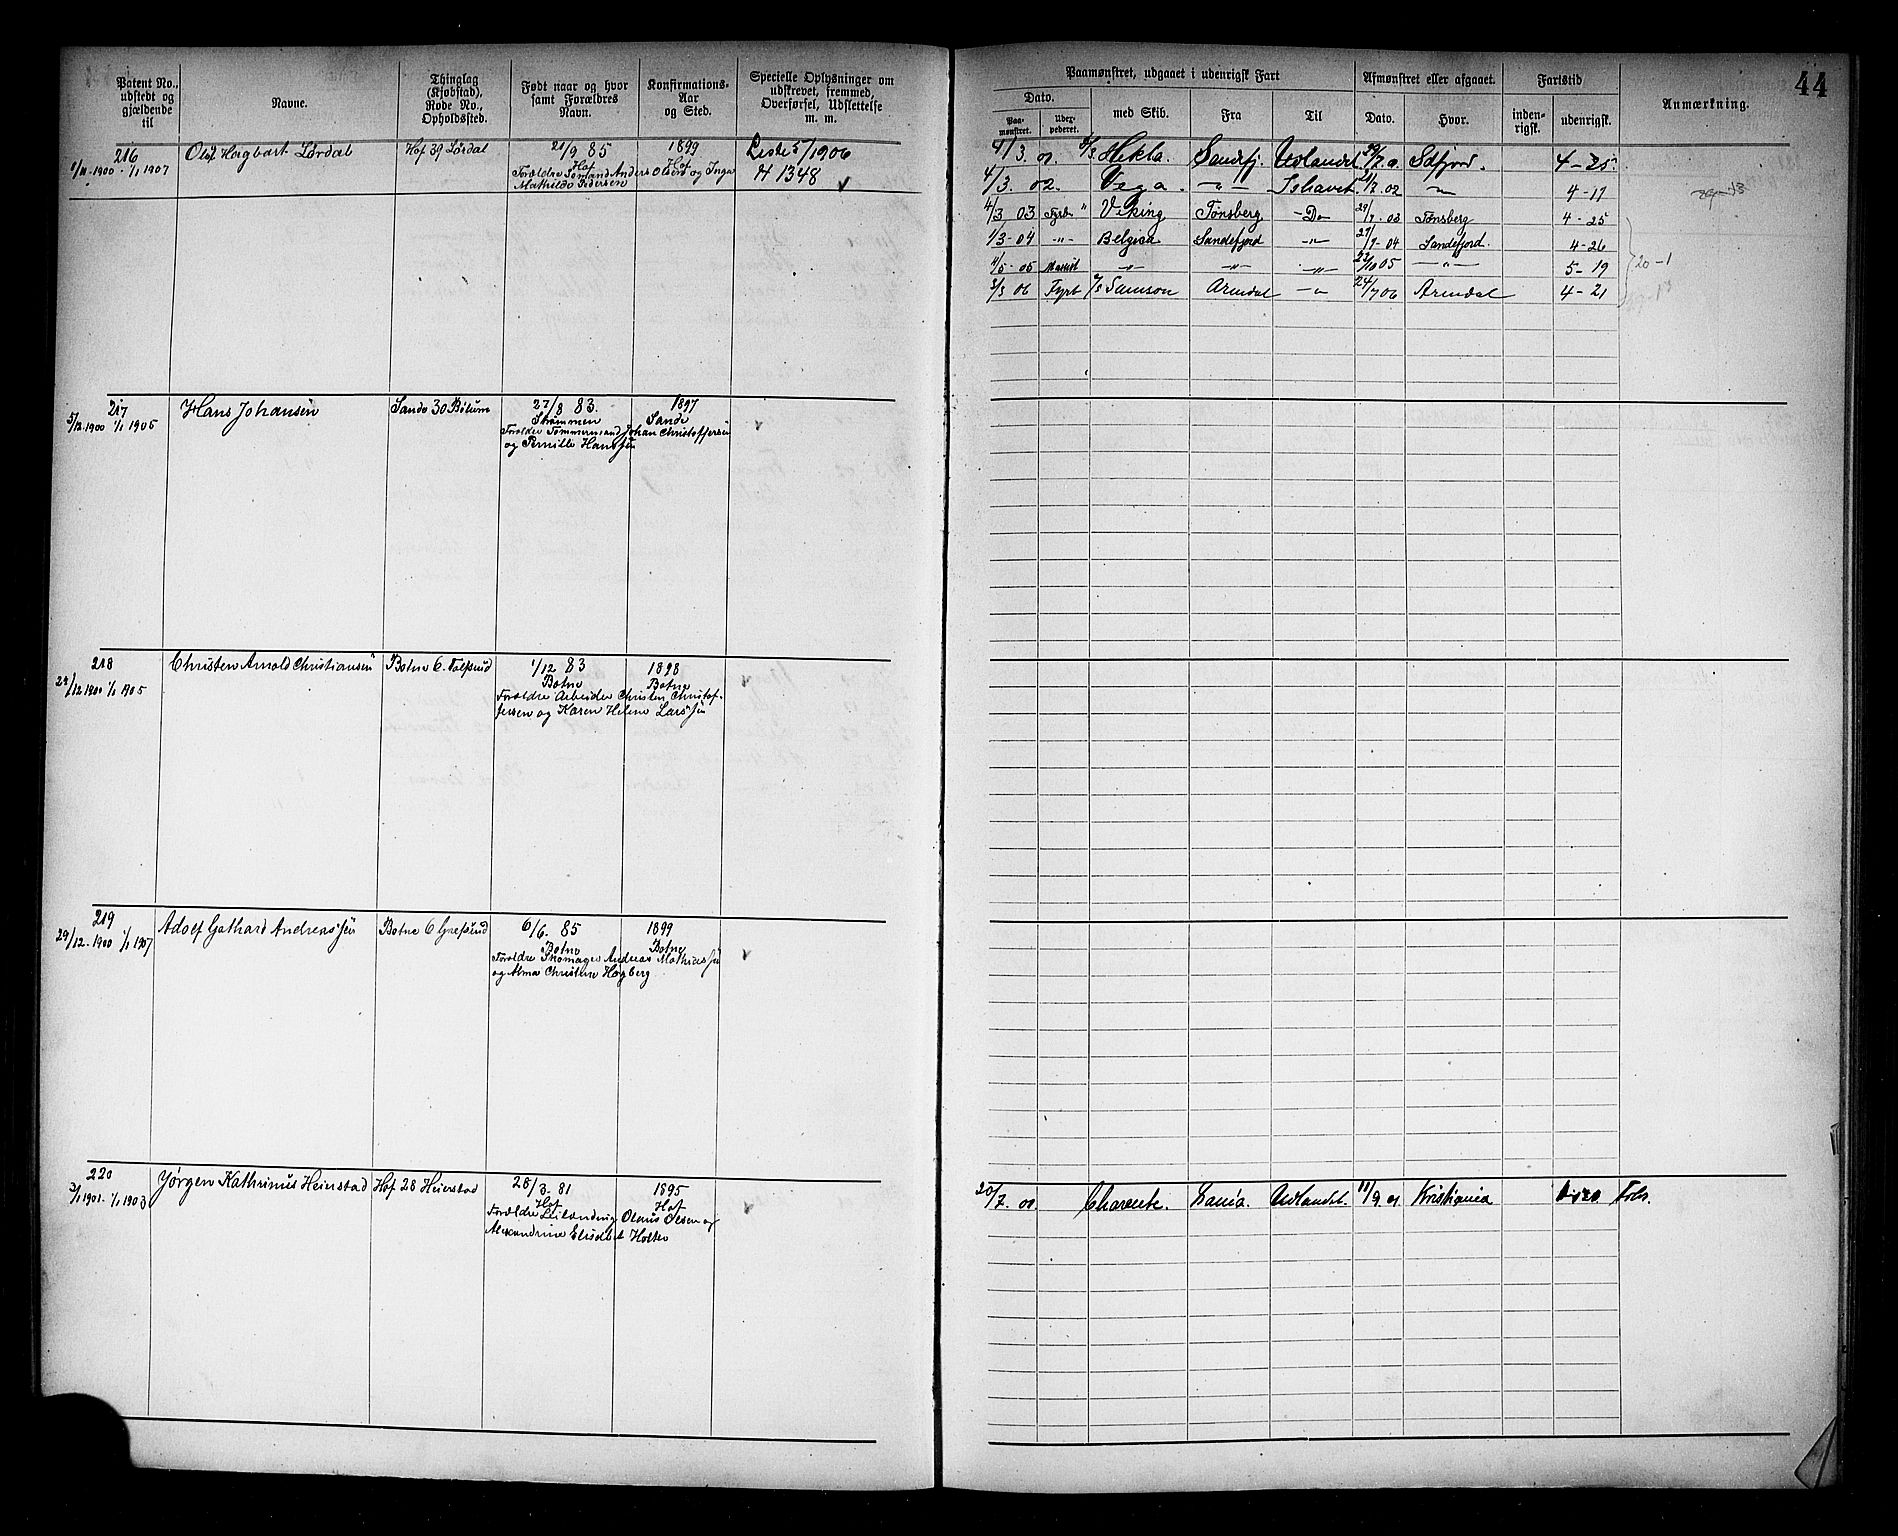 44
Patent No., udstedt og gjældende til
Navne.
Thinglag (Kjøbstad), Rode No., Opholdssted.
Født naar og hvor samt Forældres Navn.
Konfirmations-Aar og Sted.
Specielle Oplysninger om udskrevet, fremmed, Overførsel, Udslettelse m. m.
Paamønstret, udgaaet i udenrigsk Fart
Dato.
Paa-mønstret.
med Skib.
Fra
Til
Afmønstret eller afgaaet.
Dato.
Hvor.
Fartstid
inden-rigsk.
udenrigsk.
Anmærkning.
216
1900 - 1/1 1907
Olaf Hagbart Lørdal
Hof 39 Lørdal
21/9 85
Hof
Forældre Anders Olsen og Inga
Mathilde Pedersen
1899
Hof
Liste 5/1906
№ 1348
4/3. Hekla. Sandefj. Udlandet Sdfjord. 4-25.
4/3. 02. Vega. -"- Ishavet. 02 -"- 4-17
4/3 03 Fyrb. Viking Tønsberg -Do- 29/7-03 Tønsberg 4-25
1/3-04 -"- Belgica Sandefjord -"- 27/7-04 Sandefjord. 4-26
05 -"- -"- -"- 05 -"- 5-19
06 Fyrb Samson Arendal -"- 24/7 06 Arendal 4-21
20-1
217
5/12 1900 1/1 1905
Hans Johansen
Sande 30 Bølum
27/8 83.
Strømmen
Forældre Tømmermand Johan Christoffersen
og Pernille Hansen
1897
Sande
218
1900 1/1 1905
Christen Arnold Christiansen
Botne 6.
1/12 83
Botne
Forældre Arbeider Christen Christof-
fersen og Karen Helene Larssen
1898
Botne
219
29/12-1900 1/1 1907
Adolf Gothard Andreassen
Botne 6 Grefsrud
6/6. 85
Botne
Forældre Skomager Andreas Mathiassen
og Alma Christen Høgberg
1899
Botne
220
3/1 1901. 1/1 1903
Jørgen Kathrinus Heierstad
Hof 28 Heierstad
28/3. 81
Hof
Forældre Leilænding Olaus Olsen og
Alexandrine Elisabet Holter
1895
Hof
20/7. Charente. Udlandet. 11/9 01 Kristiania